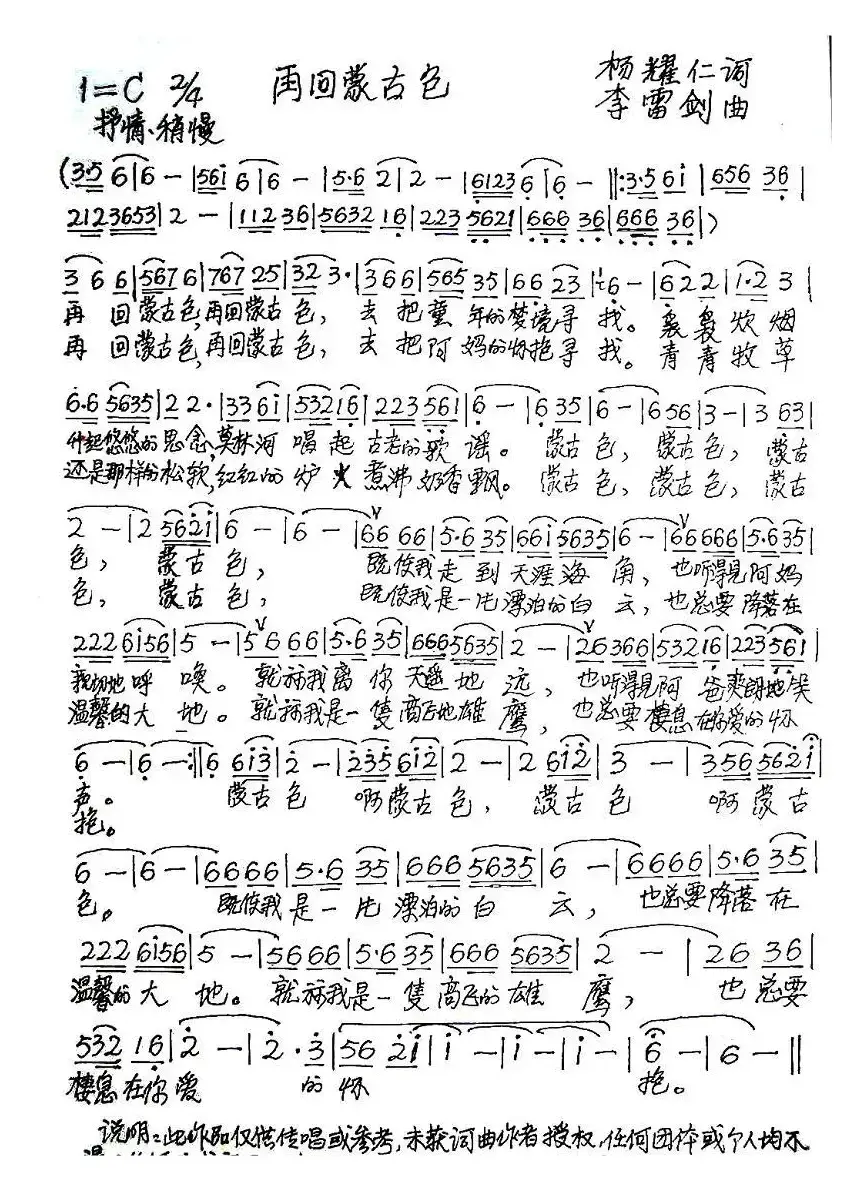 再回蒙古包 杨耀仁词
1=C 2/4 李雷剑曲
抒情、稍慢
(35 6|6 - |561 6|6 - |5·6 2|2 - |61236|6 - ‖:3·5 61|656 36|
2123653|2 - |112 36|5632 16|223 5621|666 36|666 36|)
3 6 6|567 6|767 25|32 3·|366|565 35|66 23|6 - |622|1·2 3|
再 回蒙古包,再回蒙古包, 去把童年的梦境寻找。袅袅炊烟
再 回蒙古包,再回蒙古包, 去把阿妈的怀抱寻找。青青牧草
6·6 5635|2 2·|33 61|532 16|223 561|6 - |6 35|6 - |6 56|3 - |3 63|
升起悠悠的思念,莫林河唱起古老的歌谣。蒙古包,蒙古包,蒙古
还是那样的松软,红红的炉火煮沸奶香飘。蒙古包,蒙古包,蒙古
2 - |2 5621|6 - |6 - |66 66|5·6 35|661 5635|6 - |66666|5·635|
包, 蒙古包, 既使我走到天涯海角,也听得见阿妈
包, 蒙古包, 既使我是一片漂泊的白云,也总要降落在
222 6156|5 - |5 6 66|5·6 35|6665635|2 - |26366|532 16|223 561|
亲切地呼唤。就祘我离你天遥地远,也听得见阿爸爽朗地笑
温馨的大地。就祘我是一隻高飞地雄鹰,也总要棲息在你爱的怀
6 - |6 - :‖6 613|2 - |235 612|2 - |2 612|3 - |356 5621|
声。 蒙古包 啊蒙古包,蒙古包 啊蒙古
抱。
6 - |6 - |6666|5·6 35|666 5635|6 - |6666|5·6 35|
包。 既使我是一片漂泊的白云,也总要降落在
222 6156|5 - |5666|5·6 35|666 5635|2 - |26 36|
温馨的大地。就祘我是一隻高飞的雄鹰,也总要
532 16|2 - |2·3|56 21|1 - |1 - |1 - |6 - |6 - ‖
棲息在你爱的怀抱。
说明:此作品仅供传唱或参考,未获词曲作者授权,任何团体或个人均不